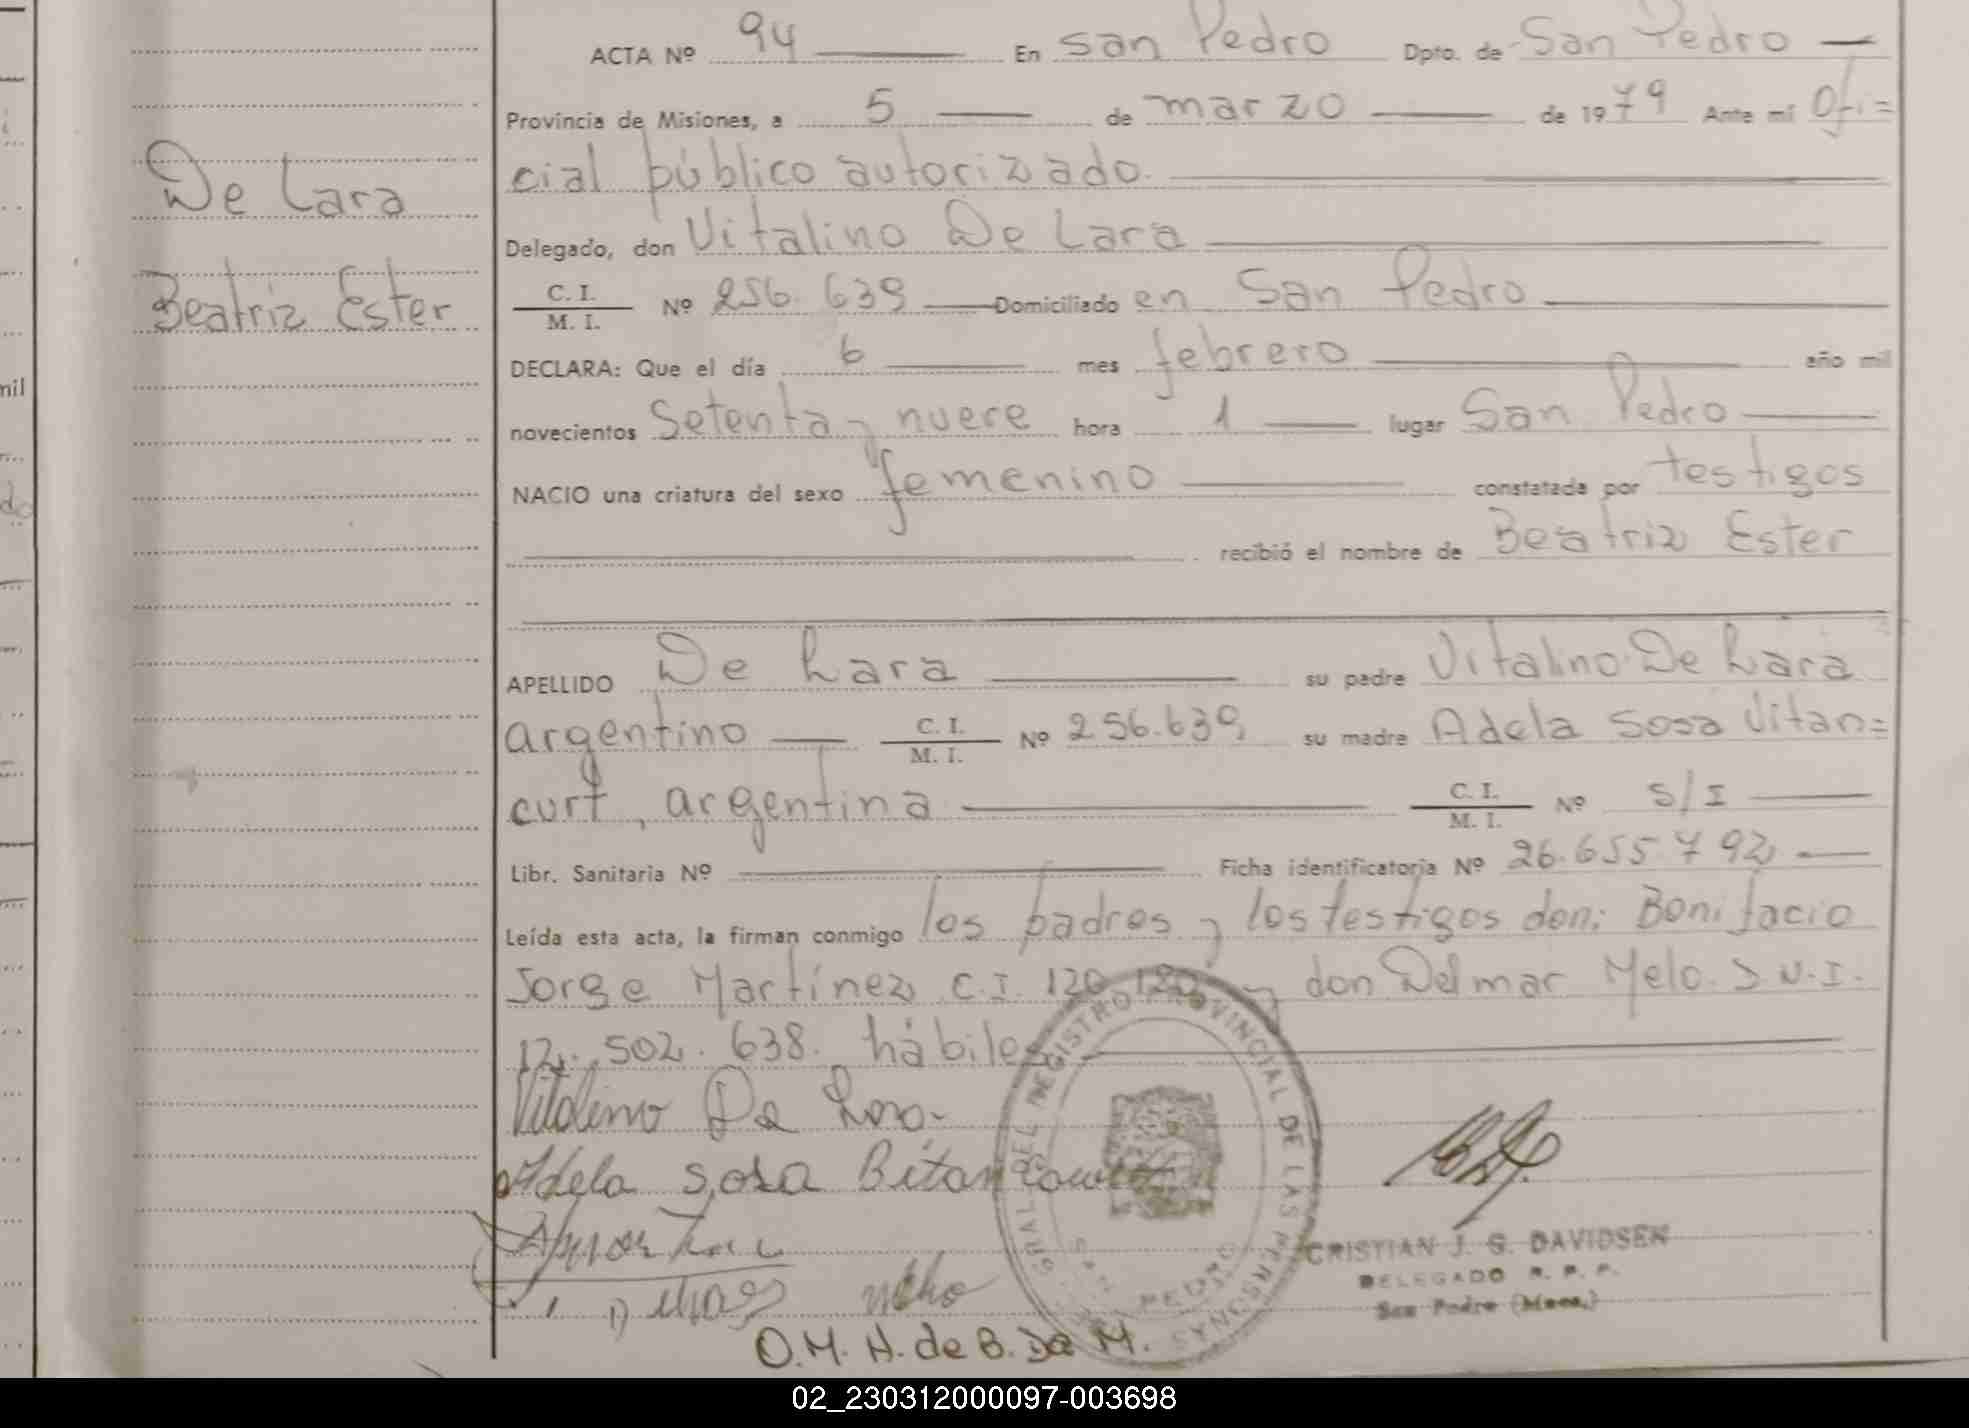 De Lara
Beatriz Ester
ACTA Nº 94 En San Pedro Dpto. de San Pedro
Provincia de Misiones, a 5 de marzo de 1979 Ante mí Ofi=
cial público autorizado.
Delegado, don Vitalino De Lara
C. I.
M. I.
Nº 256.639 Domiciliado en San Pedro
DECLARA: Que el día 6 mes febrero año mil
novecientos Setenta y nueve hora 1 lugar San Pedro
NACIO una criatura del sexo femenino constatada por testigos
recibió el nombre de Beatriz Ester
APELLIDO De Lara su padre Vitalino De Lara
argentino C. I. M. I. Nº 256.639 su madre Adela Sosa Vitan=
curt, argentina C. I. M. I. Nº S/I
Libr. Sanitaria Nº Ficha identificatoria Nº 26.655.792
Leída esta acta, la firman conmigo los padres y los testigos don: Bonifacio
Jorge Martínez C.I. 120.180 y don Delmar Melo. D.N.I.
12.502.638. hábiles
Vitalino De Lara
Adela Sosa Bitancourt
GRAL. DEL REGISTRO PROVINCIAL DE LAS PERSONAS
SAN PEDRO
CRISTIAN J. G. DAVIDSEN
DELEGADO R. P. P.
San Pedro (Mnes.)
O.M.H. de B. De M.
mil
do
02_230312000097-003698